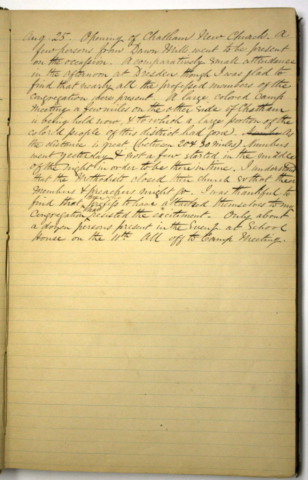 Aug 25. Opening of Chatham New Church. A
few persons from Dawn Mills went to be present
on the occasion. A comparatively small attendance
in the afternoon at Dresden though I was glad to
find that nearly all the professed members of the
Congregation were present. A large colored Camp
Meeting a few miles on the other side of Chatham
is being held now, & to which a large portion of the
colored people of this district had gone. As
the distance is great (between 20 & 30 miles) Numbers
went yesterday & not a few started in the middle
of the night in order to be there in time. I understand
that the Methodists closed their church so that the
members & preachers might go. I was thankful to
find that professing to have attached themselves to my
Congregation resisted the excitement. Only about
a dozen persons present in the Eveng at School
House on the 11th. All off to Camp Meeting.